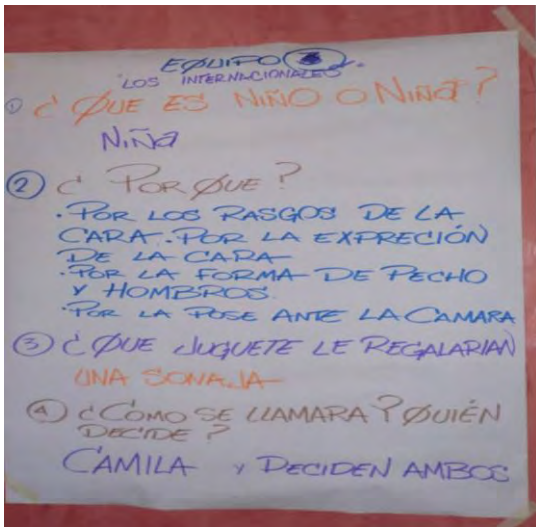 EQUIPO 3.
"LOS INTERNACIONALES"
① ¿QUE ES NIÑO O NIÑA?
NIÑA
② ¿POR QUE?
· POR LOS RASGOS DE LA
CARA. · POR LA EXPRECIÓN
DE LA CARA
· POR LA FORMA DE PECHO
Y HOMBROS.
· POR LA POSE ANTE LA CAMARA
③ ¿QUE JUGUETE LE REGALARIAN
UNA SONAJA
④ ¿COMO SE LLAMARA? QUIÉN
DECIDE?
CAMILA Y DECIDEN AMBOS